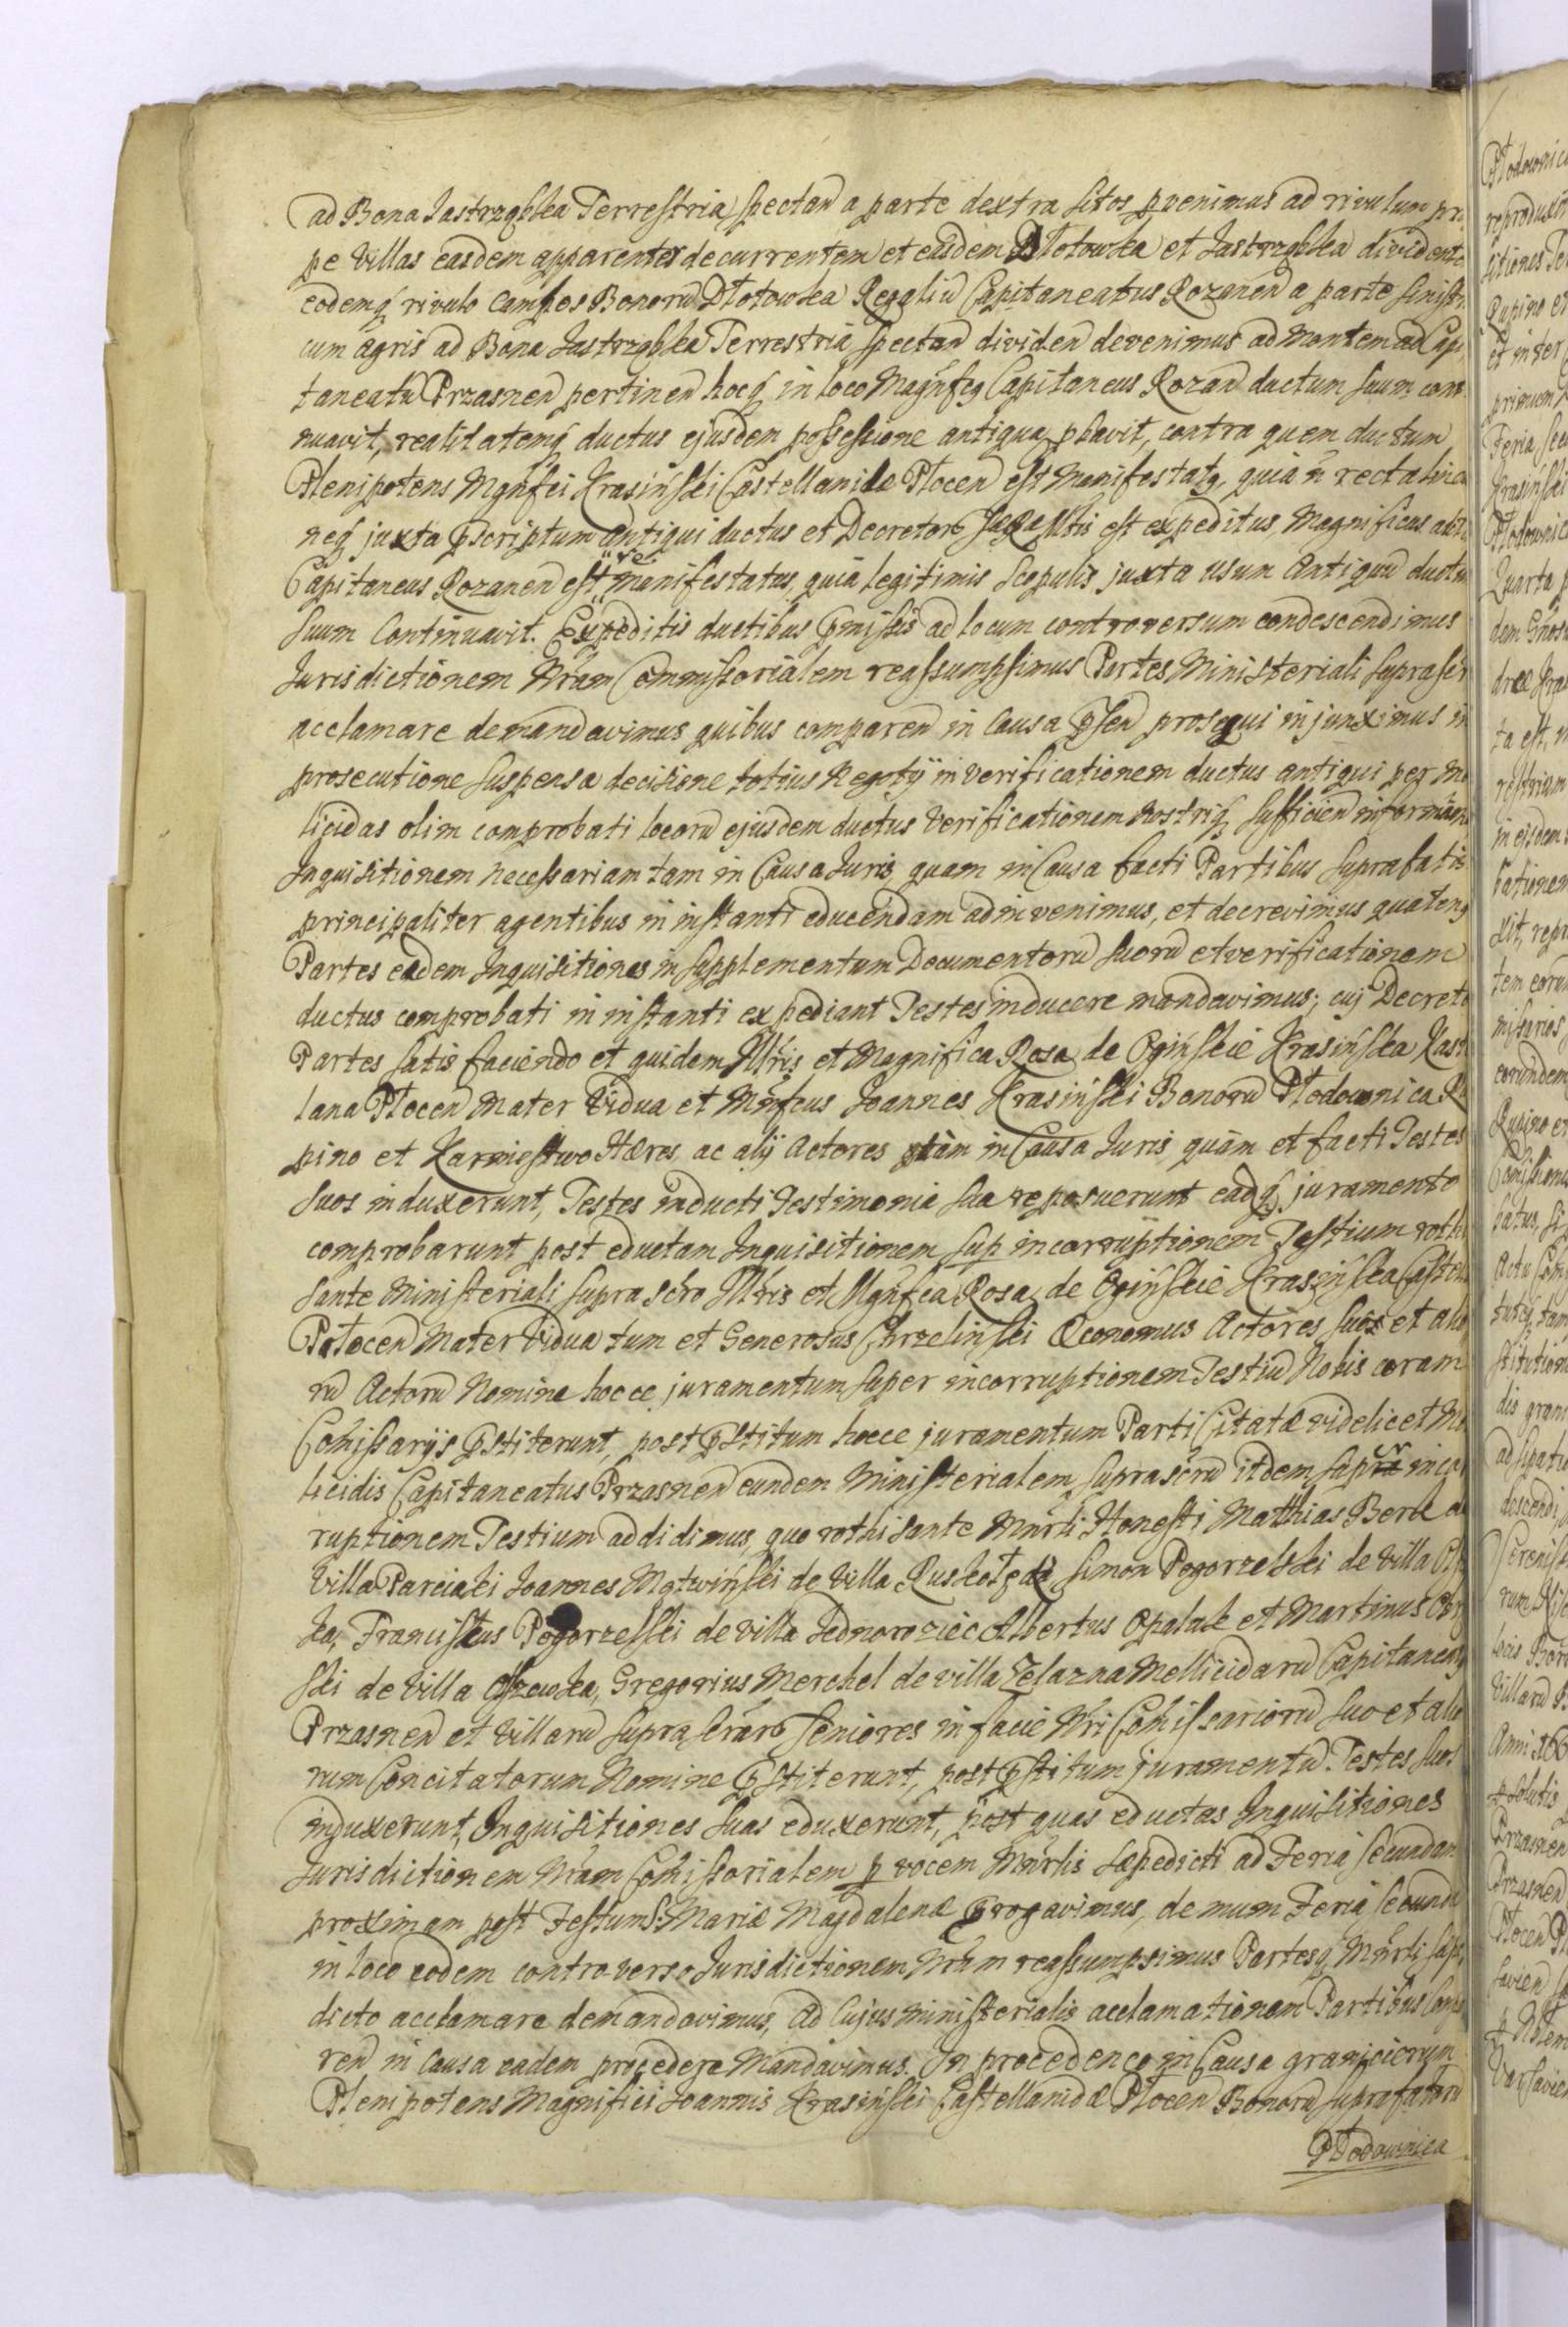 ad Bona Jastrząbka Terrestria spectan a parte dextra sitos pvenimus ad rivulum pro
pe Villas easdem apparenter decurrentem et easdem Dłotowka et Jastrząbka dividente
eodemq rivulo Campos Bonorū Dłotowka Regaliū Capitaneatus Rozanen a parte sinist
cum agris ad Bona Jastrząbka Terrestria spectan dividen devenimus ad Montem ad Capi
taneatū Przasnen pertinen hocq in loco Magnfcq Capitaneus Rozan ductum suum conti
nuavit, realitatemq ductus ejusdem possessione antiqua pbavit, contra quem ductum
Plenipotens Mgnfci Krasinski Castellanidæ Płocen est Manifestatq, quia n recta linea
neq juxta pscriptum antiqui ductus et Decretorū Sac Ræ Mtis est expeditus, Magnificus
Capitaneus Rozanen est re manifestatus, quia legitimis Scopulis juxta usum Antiquū ductum
suum Continuavit. Expeditis ductibus pmissis ad locum controversum condescendimus
Jurisdictionem Nram Commissorialem reassumpsimus Partes Ministeriali suprascr
acclamare demandavimus quibus comparen in Causa psen prosequi injunximus in
prosecutione suspensa decisione totius Negotÿ in verificationem ductus antiqui per Me
licidas olim comprobati locorū ejusdem ductus Verificationem Nostriq sufficien informaōn
Inquisitionem necessariam tam in Causa Juris quam in Causa facti Partibus suprafatis
principaliter agentibus in instanti educendam adinvenimus, et decrevimus quatenq
Partes eædem Inquisitiones in supplementum Documentorū suorū et verificationem
ductus comprobati in instanti expediant Testes inducere mandavimus; cuj Decreto
Partes satis faciendo et quidem Illris et Magnifica Rosa de Oginskie Krasinska Kast
lana Płocen Mater Vidua et Mnfcus Joannes Krasinski Bonorū Płodownica Ru
pino et Karniestwo Hæres ac alÿ Actores tàm in Causa Juris quàm et facti Testes
suos induxerunt, Testes inducti Testimonia sua reposuerunt eaqq juramento
comprobarunt post eductam Inquisitionem sup incorruptionem Testium roth
sante Ministeriali supra scro Illris et Mgnfca Rosa de Oginskie Krasinska Castell
Płocen Mater Vidua tum et Generosus Chrzelinski Œconomus Actores suo et alio
rū Actorū Nomine hocce juramentum super incorruptionem Testiū Nobis coram
Comissarÿs pstiterunt, post pstitum hocce juramentum Parti Citatæ videlicet Me
licidis Capitaneatus Przasnen eundem Ministerialem suprascrū itidem super incor
ruptionem Testium addidimus, quo rothisante Mnrli Honesti Matthias Berk de
Villa Parciaki Joannes Mątwinski de Villa Ruskołęka Simon Pogorzelski de Villa
ka, Franciscus Pogorzelski de Villa Jednorożiec Albertus Opalak et Martinus
ski de Villa Olszewka, Gregorius Merchel de villa Zelazna Mellicidarū Capitaneatq
Przasnen et Villarū suprascrarū seniores in facie Nri Comissariorū suo et alio
rum Concitatorum Nomine pstiterunt, post pstitum juramentū Testes suos
induxerunt, Inquisitiones suas eduxerunt, post quas eductas Inquisitiones
Jurisdictionem Nram Comissorialem p vocem Mnrlis sæpedicti ad Feria secundam
proximam post Festum S: Mariæ Magdalenæ prorogavimus, demum Feria secunda
in loco eodem controverso Jurisdictionem Nram reassumpsimus Partesq Mnrli sæpe
dicto acclamare demandavimus, ad Cujus ministerialis acclamationem Partibus Compa
ren in Causa eadem procedere Mandavimus. In proceden in Causa granicierum
Plenipotens Magnifici Joannis Krasinski Castellanidæ Płocen Bonorū suprafatorū
Płodownica